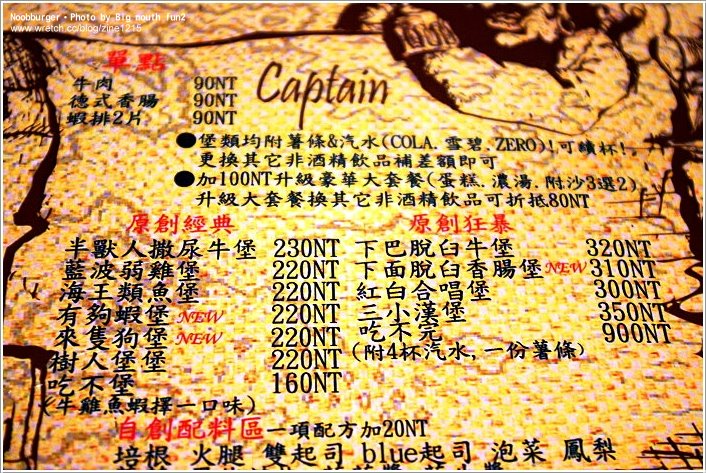 Noobburger • Photo by Big mouth Jun2
www.wretch.cc/blog/zine1215
單點
牛肉 90NT
德式香腸 90NT
蝦排2片 90NT
Captain
●堡類均附薯條&汽水(COLA.雪碧.ZERO)!可續杯!
更換其它非酒精飲品補差額即可
●加100NT升級豪華大套餐(蛋糕.濃湯.附沙3選2)
升級大套餐換其它非酒精飲品可折抵80NT
原創經典
半獸人撒尿牛堡 230NT
藍波弱雞堡 220NT
海王類魚堡 220NT
有夠蝦堡 NEW 220NT
來隻狗堡 NEW 220NT
樹人堡堡 220NT
吃不堡 160NT
(牛雞魚蝦擇一口味)
原創狂暴
下巴脫臼牛堡 320NT
下面脫臼香腸堡 NEW 310NT
紅白合唱堡 300NT
三小漢堡 350NT
吃不完 900NT
(附4杯汽水,一份薯條)
自創配料區 一項配方加20NT
培根 火腿 雙起司 blue起司 泡菜 鳳梨